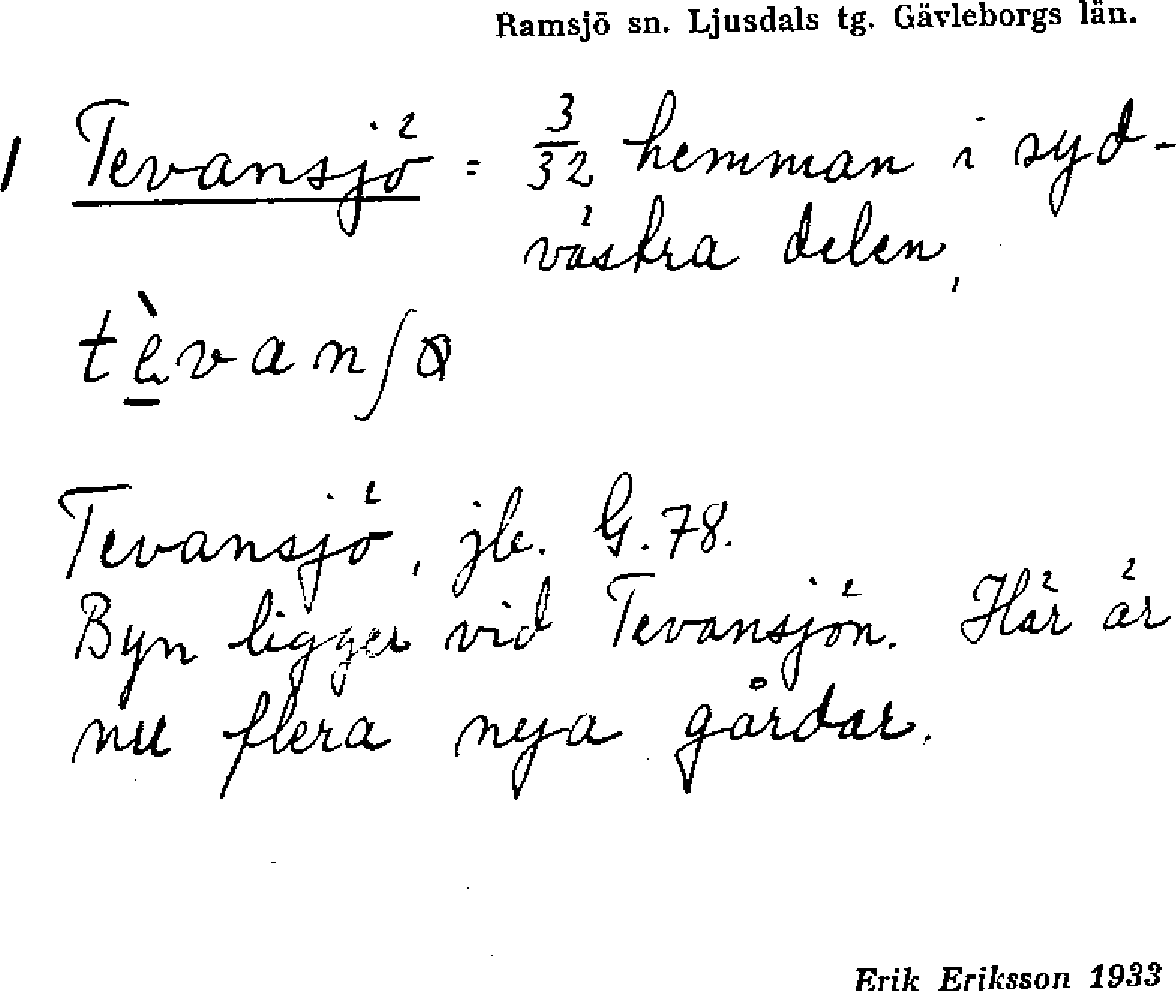 Ramsjö sn. Ljusdals tg. Gävleborgs län.
1 Tevansjö = 3/32 hemman i syd-
västra delen,
tèvanʃɷ
Tevansjö, jb. G. 78.
Byn ligger vid Tevansjön. Här är
nu flera nya gårdar.
Erik Eriksson 1933